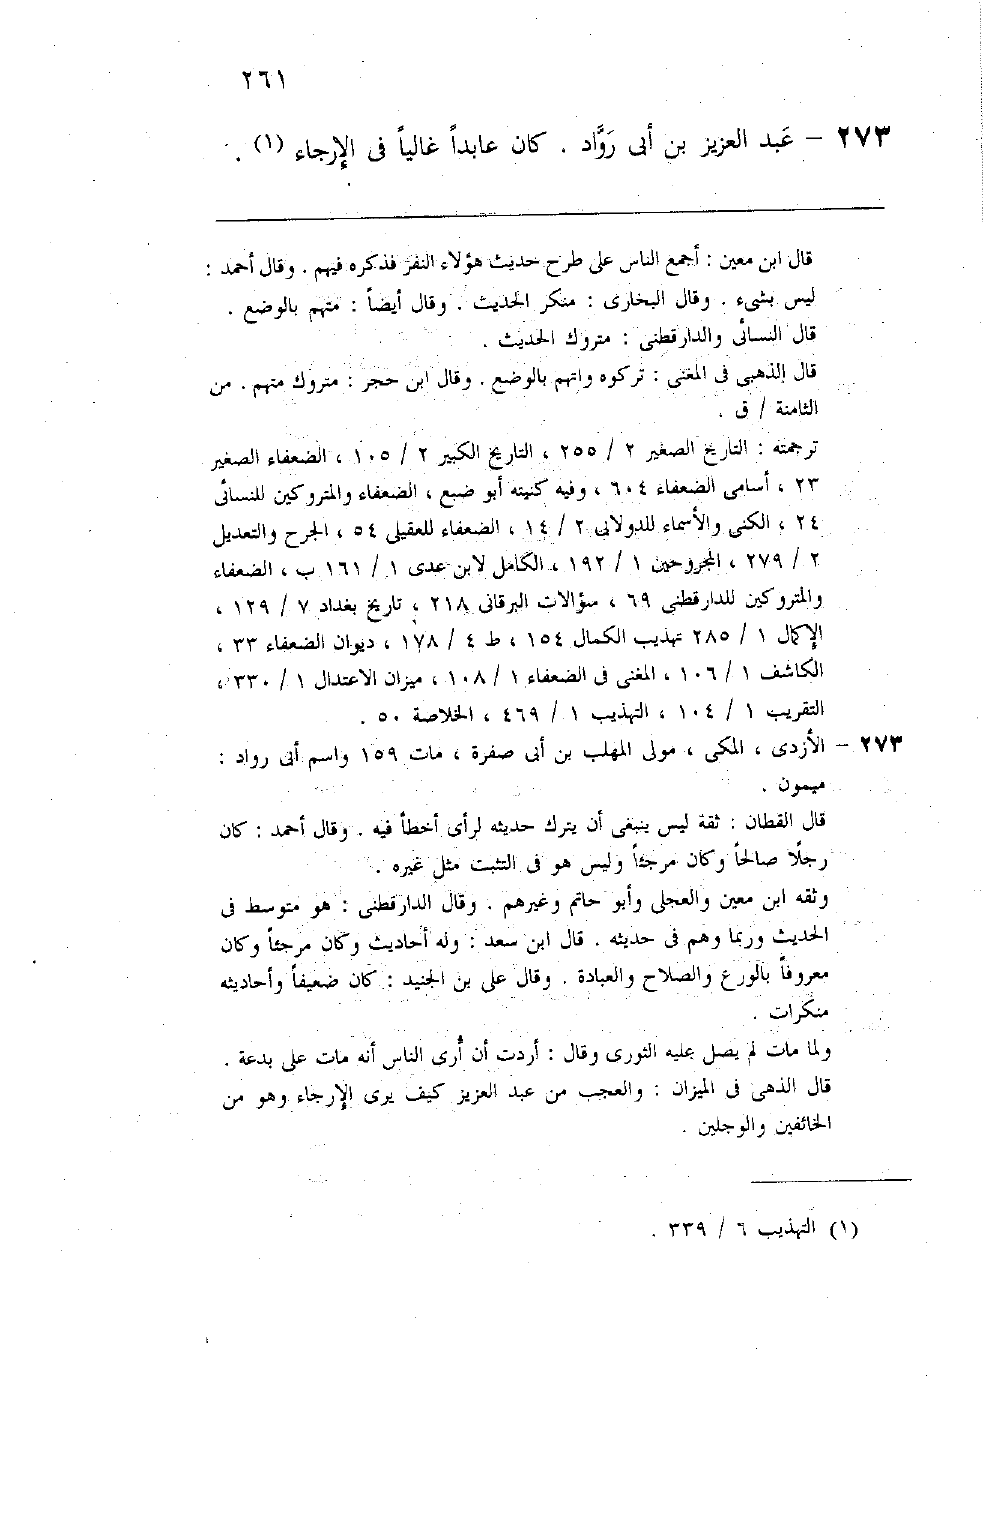 ٢٦١
٢٧٣ – عَبد العزيز بن أبى رَوَّاد . كان عابداً غالياً فى الإرجاء (١) .
قال ابن معين : أجمع الناس على طرح حديث هؤلاء النفر فذكره فيهم . وقال أحمد :
ليس بشىء . وقال البخارى : منكر الحديث . وقال أيضاً : متهم بالوضع .
قال النسائى والدارقطنى : متروك الحديث .
قال الذهبى فى المغنى : تركوه واتهم بالوضع . وقال ابن حجر : متروك متهم . من
الثامنة / ق .
ترجمته : التاريخ الصغير ٢ / ٢٥٥ ، التاريخ الكبير ٢ / ١٠٥ ، الضعفاء الصغير
٢٣ ، أسامى الضعفاء ٦٠٤ ، وفيه كنيته أبو ضبع ، الضعفاء والمتروكين للنسائى
٢٤ ، الكنى والأسماء للدولابى ٢ / ١٤ ، الضعفاء للعقيلى ٥٤ ، الجرح والتعديل
٢ / ٢٧٩ ، المجروحين ١ / ١٩٢ ، الكامل لابن عدى ١ / ١٦١ ب ، الضعفاء
والمتروكين للدارقطنى ٦٩ ، سؤالات البرقانى ٢١٨ ، تاريخ بغداد ٧ / ١٢٩ ،
الإكمال ١ / ٢٨٥ تهذيب الكمال ١٥٤ ، ط ٤ / ١٧٨ ، ديوان الضعفاء ٣٣ ،
الكاشف ١ / ١٠٦ ، المغنى فى الضعفاء ١ / ١٠٨ ، ميزان الاعتدال ١ / ٣٣٠ ،
التقريب ١ / ١٠٤ ، التهذيب ١ / ٤٦٩ ، الخلاصة ٥٠ .
٢٧٣ – الأزدى ، المكى ، مولى المهلب بن أبى صفرة ، مات ١٥٩ واسم أبى رواد :
ميمون .
قال القطان : ثقة ليس ينبغى أن يترك حديثه لرأى أخطأ فيه . وقال أحمد : كان
رجلًا صالحاً وكان مرجئاً وليس هو فى التثبت مثل غيره .
وثقه ابن معين والعجلى وأبو حاتم وغيرهم . وقال الدارقطنى : هو متوسط فى
الحديث وربما وهم فى حديثه . قال ابن سعد : وله أحاديث وكان مرجئاً وكان
معروفاً بالورع والصلاح والعبادة . وقال على بن الجنيد : كان ضعيفاً وأحاديثه
منكرات .
ولما مات لم يصل عليه الثورى وقال : أردت أن أُرى الناس أنه مات على بدعة .
قال الذهى فى الميزان : والعجب من عبد العزيز كيف يرى الإرجاء وهو من
الخائفين والوجلين .
(١) التهذيب ٦ / ٣٣٩ .